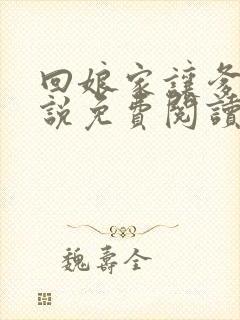 回娘家讓爹
說免費閱讀
魏壽全